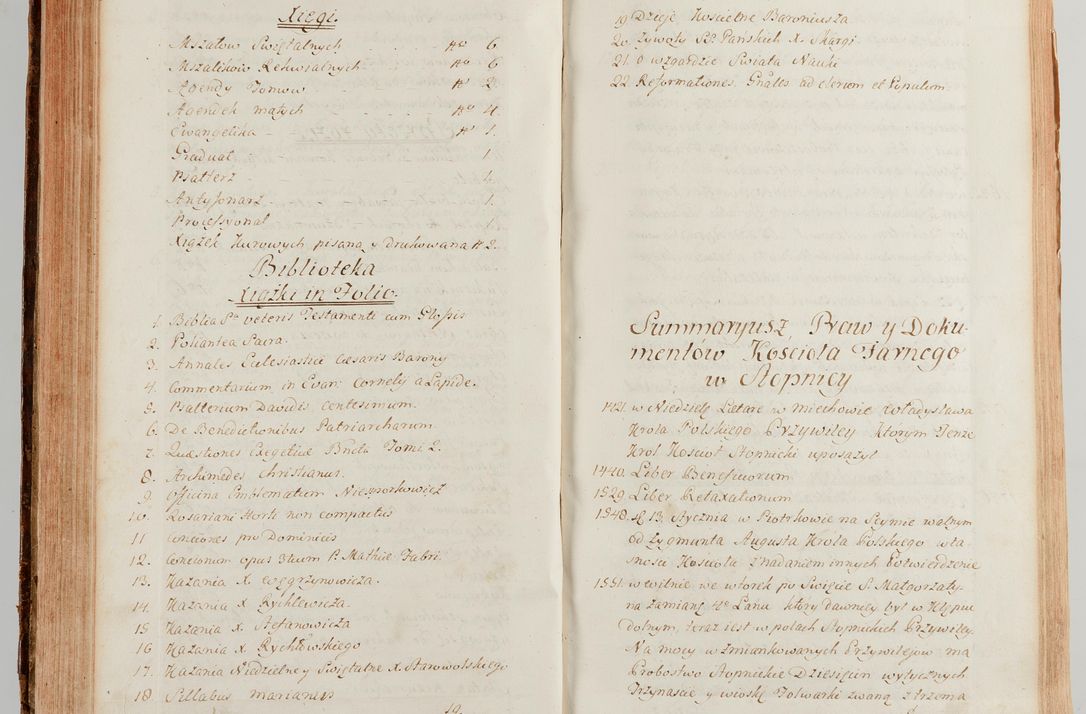 Xięgi.
Mszałow Swiętalnych - - - - No 6.
Mszalikow Rekwialnych - - - No 6
Agendy Tomow - - - - No 2.
Agendek małych - - - - No 4.
Ewangelika - - - - No 1.
Graduał - - - - 1
Psałterz - - - - 1.
Antyfonarz - - - - 1.
Processyonał - - - - 1.
Xiążek Kurowych pisana y drukowana No 2.
Biblioteka
Xiążki in Folio.
1. Biblia Sa veteris Testamenti cum Glossis
2. Poliantea Sacra.
3. Annales Eclesiastici Caesaris Barony
4. Commentarium in Evan: Cornely a Lapide.
5. Psalterium Dawidis Centesimum.
6. De Benedictionibus Patriarcharum
7. Quæstiones Exegeticæ Tomi 2.
8. Archimedes Christianus.
9. Officina Emblematum
10. Rosariani Horti non compactus
11 Conciones pro Dominicis
12. Concionum opus 3tium P. Mathiæ Fabri.
13. Kazania X. Węgrzynowicza.
14. Kazania X Rychlewicza.
15 Kazania X. Stefanowicza
16 Kazania X. Rychłowskiego
17. Kazania Niedzielne y Swiętalne X. Starowolskiego
18 Sillabus marianus
19.
19 Dzieje Koscielne Baroniusza
20. Zywoty SSch Panskich X. Skargi
21. O wzgardzie Swiata Nauki
22 Reformationes Gnales ad clerum et Populum.
Summaryusz Praw y Doku-
mentów Koscioła Farnego
w Stopnicy
1421. w Niedzielę Lætare w Miechowie Władysława
Krola Polskiego Przywiley ktorym Tenze
Krol Koscioł Stopnicki uposażył
1440. Liber Beneficiorum
1529 Liber Retaxationum
1548. D. 13 Stycznia w Piotrkowie na Seymie walnym
od Zygmunta Augusta Krola Polskiego wła-
snosci Koscioła z nadaniem innych Potwierdzenie
1551. w Wilnie we wtorek po Swięcie S. Małgorzaty
na zamianę Łanu ktory dawniey był w Kępiu
dolnym, teraz iest w polach Stopnickich Przywiley.
Na mocy wzmiankowanych Przywilejow ma
Probostwo Stopnickie Dziesięcin wytycznych
Trzynascie y wioskę Folwarki zwaną z trzema